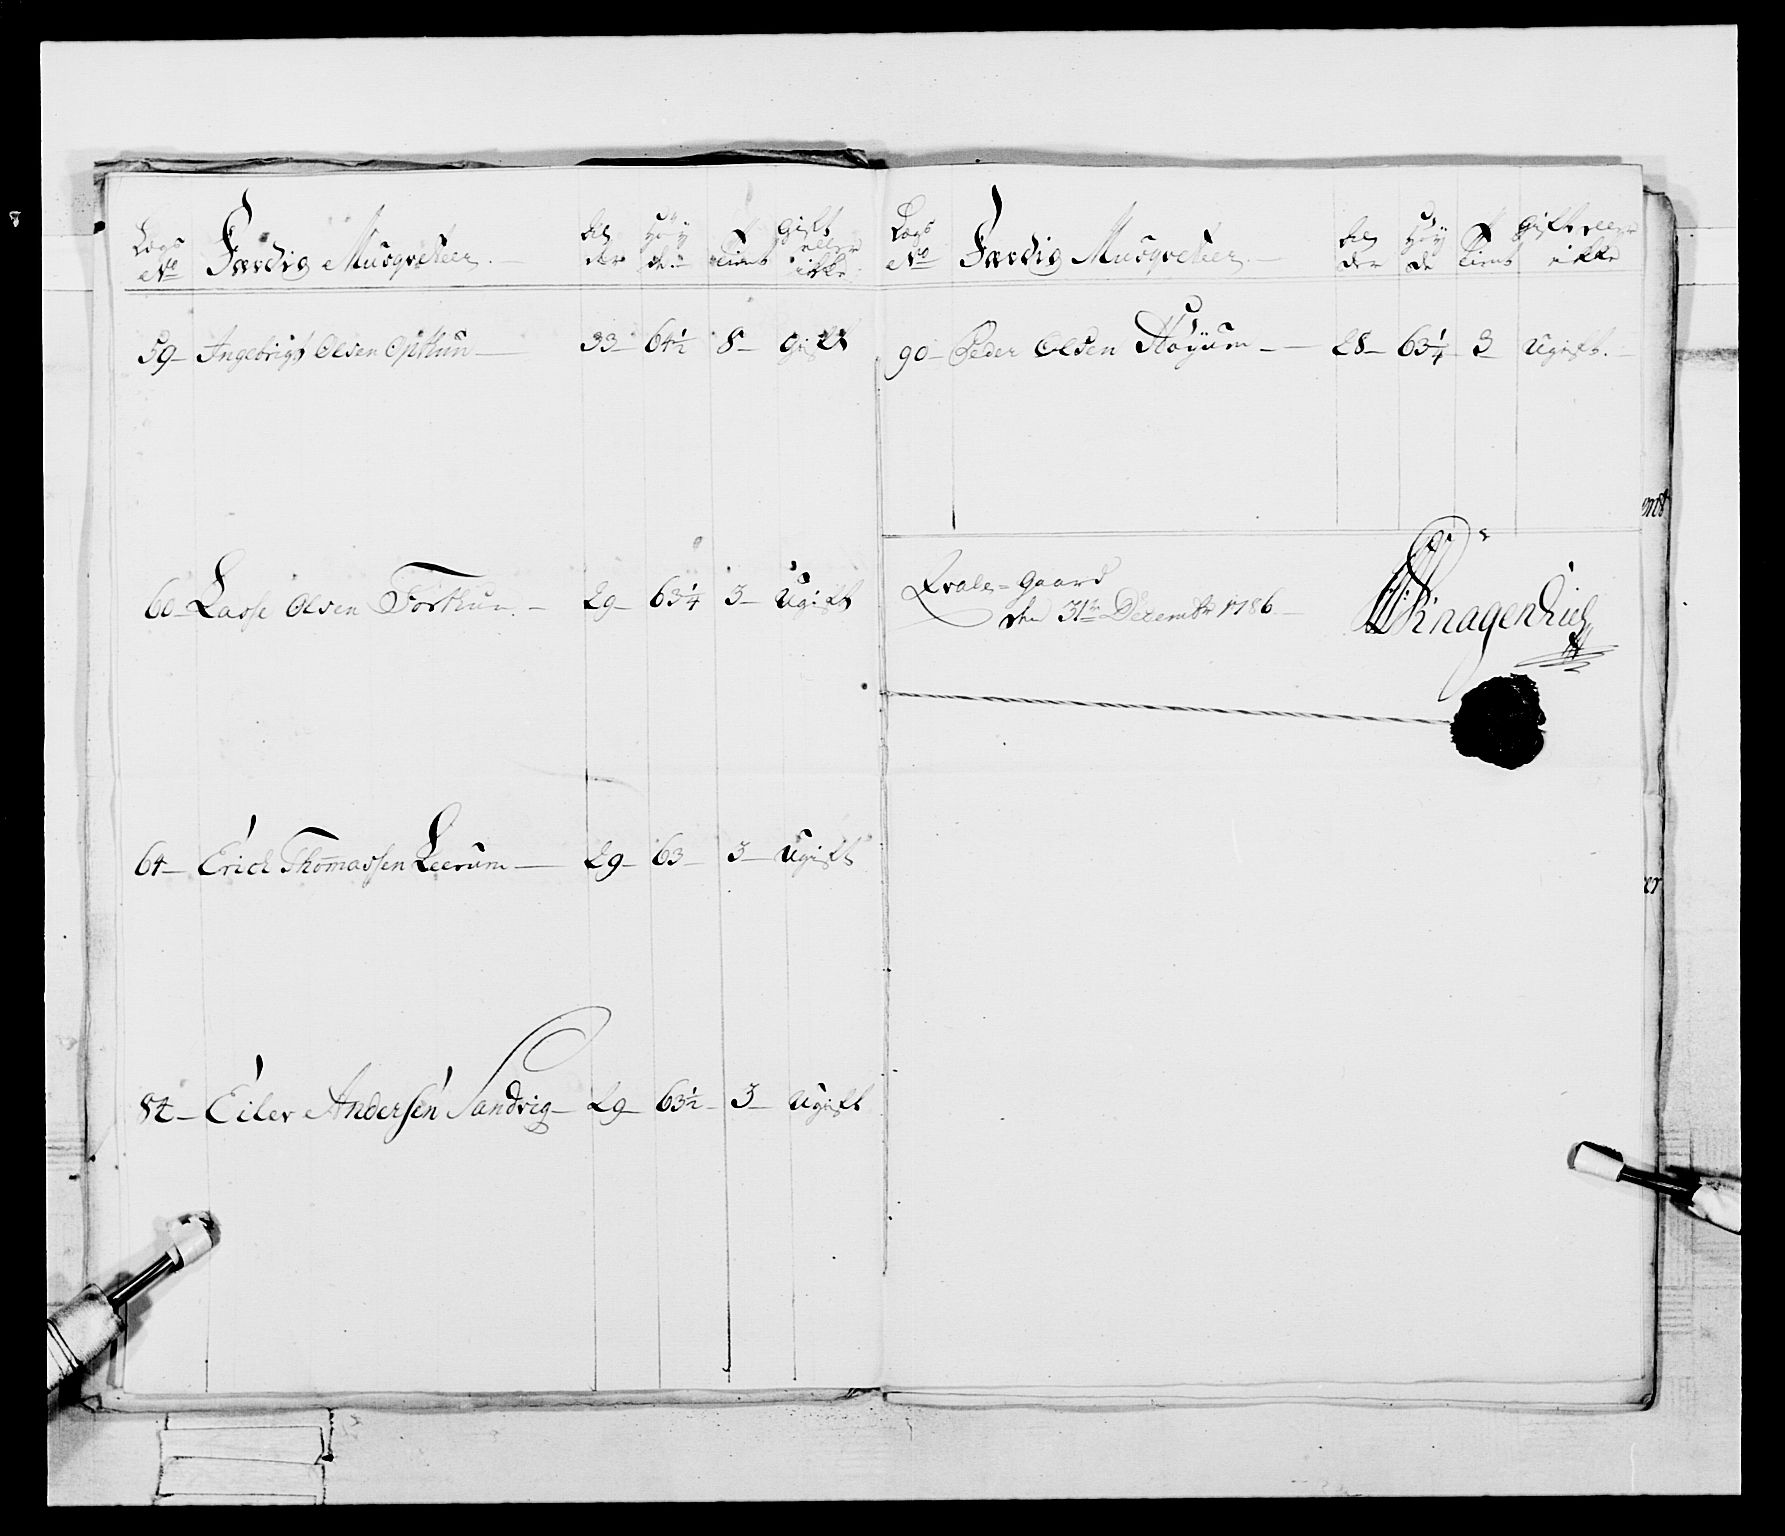 Lægs No Færdig Musqveteer. Al der Høy de. Tient Gift eller ikke.
59 Ingebrigt Olsen Opthun 33 64½ 8 Gift
60 Lasse Olsen Forthun. 29 63¼ 3 Ugift
64 Erich Thomassen Leerum 29 63 3 Ugift
84 Eiler Andersen Sandvig 29 63½ 3 Ugift
Lægs No Færdig Musqveteer. Al der Høy de Tient Gift eller ikke
90 Peder Olsen Høyum 28 63¼ 3 Ugift.
Qvale-Gaard
den 31te Decembr 1786.
Knagenhielm